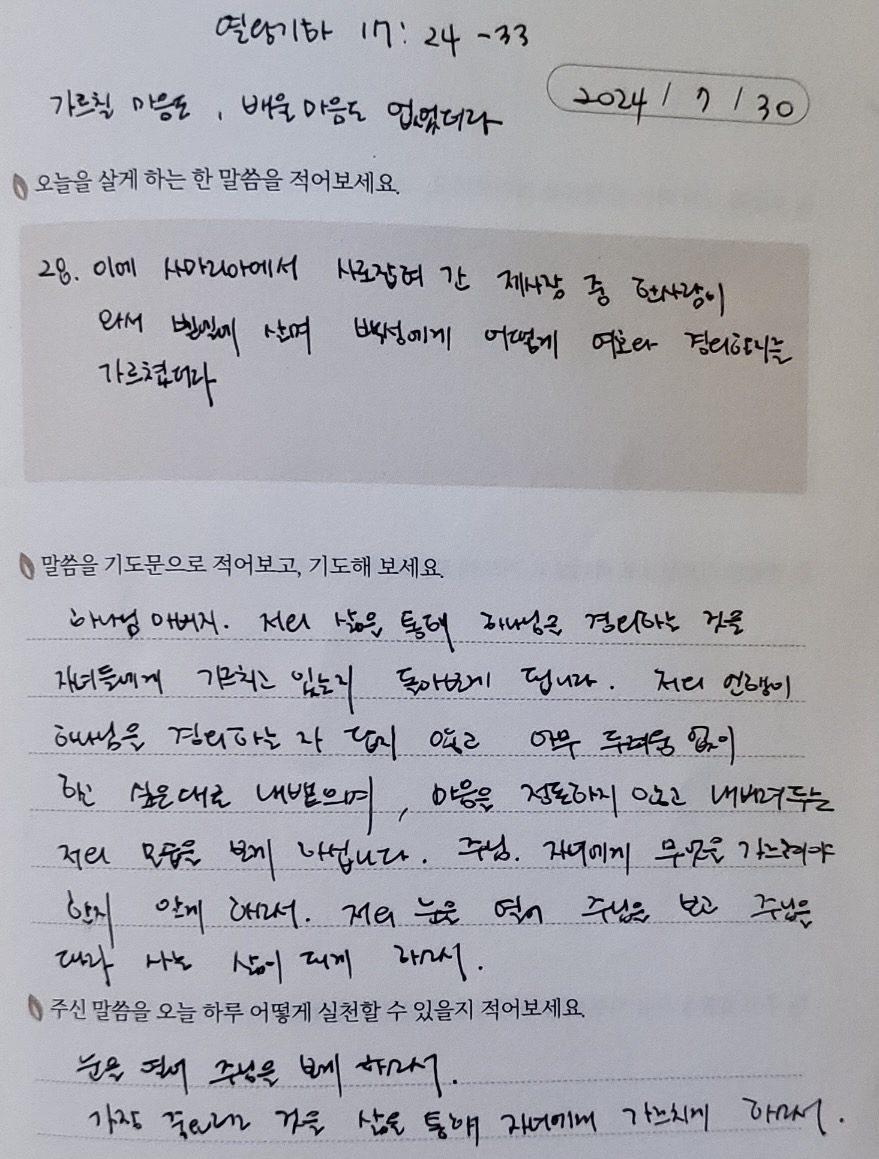 열왕기하 17:24-33
가르칠 마음도, 배울 마음도 없었더라
2024/7/30
오늘을 살게 하는 한 말씀을 적어보세요.
28. 이에 사마리아에서 사로잡혀 간 제사장 중 한사람이
와서 벧엘에 살며 백성에게 어떻게 여호와 경외하는
가르쳤더라
말씀을 기도문으로 적어보고, 기도해 보세요.
하나님 아버지. 저의 삶을 통해 하나님을 경외하는 것을
자녀들에게 가르치고 있는지 돌아보게 됩니다. 저의 언행이
하나님을 경외하는 자 답지 않고 아무 두려움 없이
하고 싶은대로 내뱉으며, 마음을 정돈하지 않고 내버려두는
저의 모습을 보게 하십니다. 주님. 자녀에게 무엇을 가르쳐야
할지 알게 하소서. 저의 눈을 열어 주님을 보고 주님을
따라 사는 삶이 되게 하소서.
주신 말씀을 오늘 하루 어떻게 실천할 수 있을지 적어보세요.
눈을 열어 주님을 보게 하소서.
가장 중요한 것을 삶을 통해 자녀에게 가르치게 하소서.